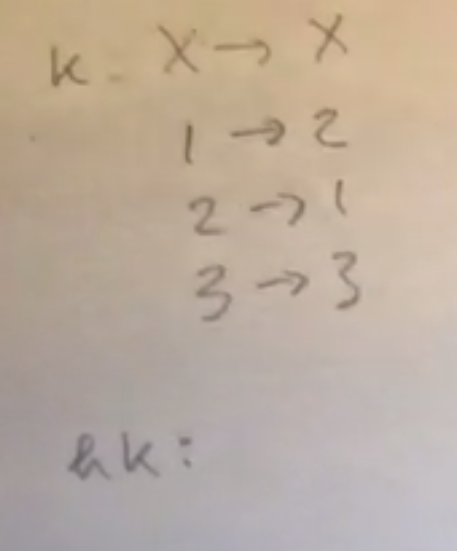 k. X → X
1 → 2
2 → 1
3 → 3
hk: